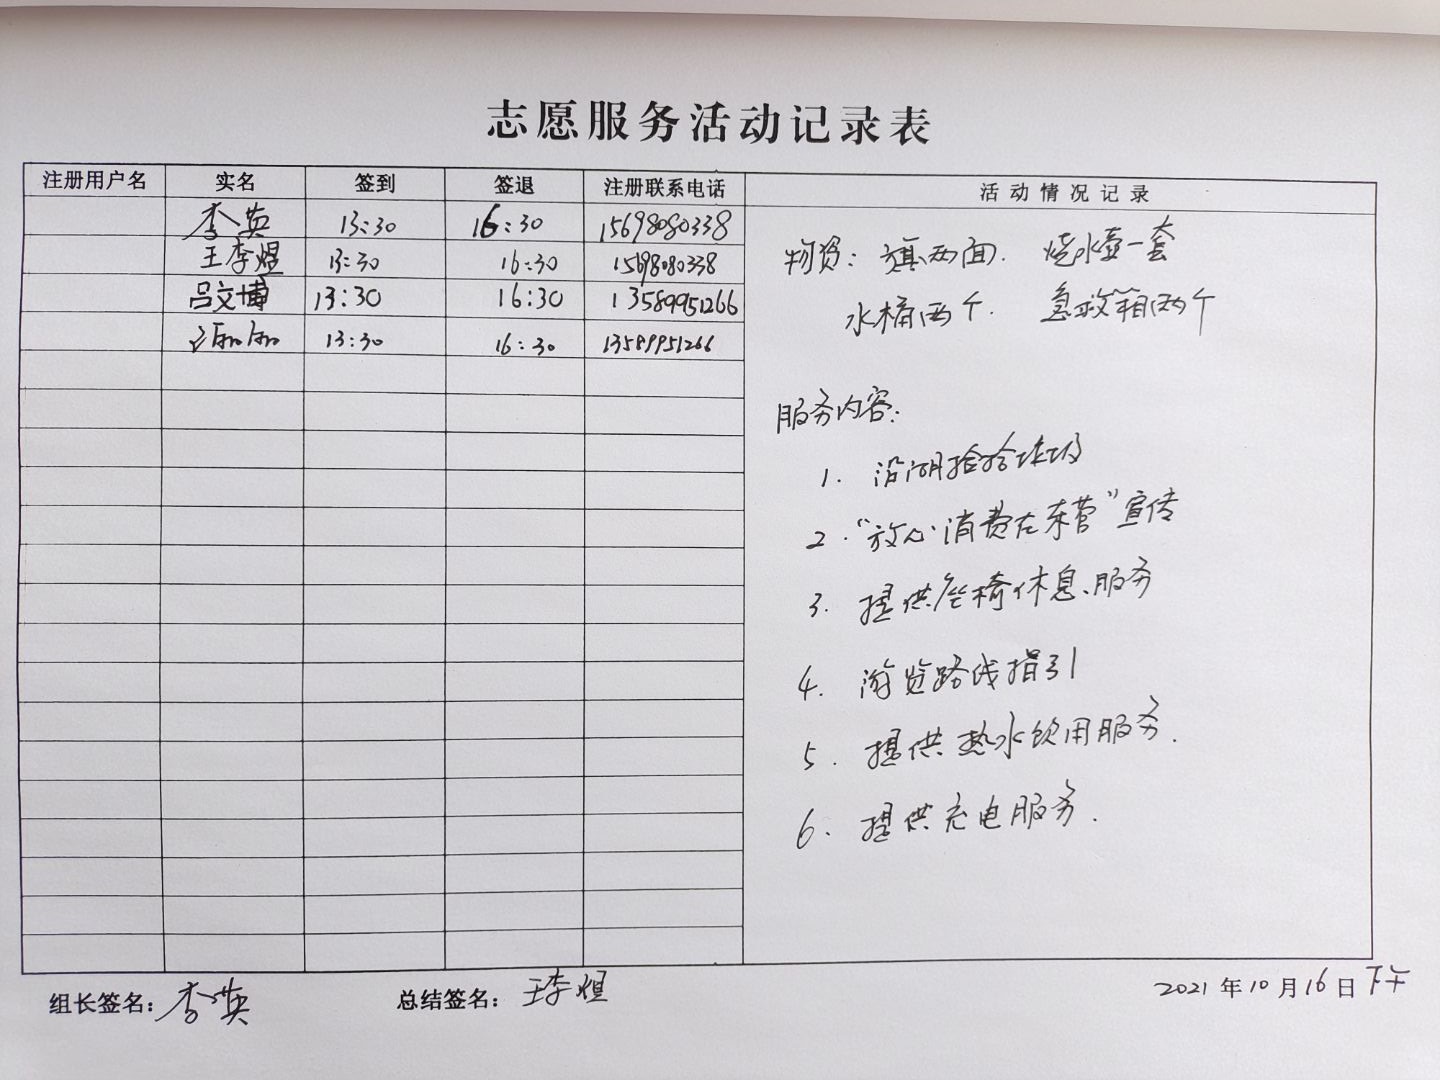 志愿服务活动记录表
注册用户名 实名 签到 签退 注册联系电话 活动情况记录
李英 13:30 16:30 15698080338
王李煜 13:30 16:30 15698080338
吕文博 13:30 16:30 13589951266
13:30 16:30 13589951266
物资：旗两面. 烧水壶一套
水桶两个. 急救箱两个
服务内容：
1. 沿湖捡拾垃圾
2.“放心消费在东营”宣传
3. 提供座椅休息、服务
4. 游览路线指引
5. 提供热水饮用服务.
6. 提供充电服务.
组长签名：李英 总结签名：王李煜 2021年10月16日下午